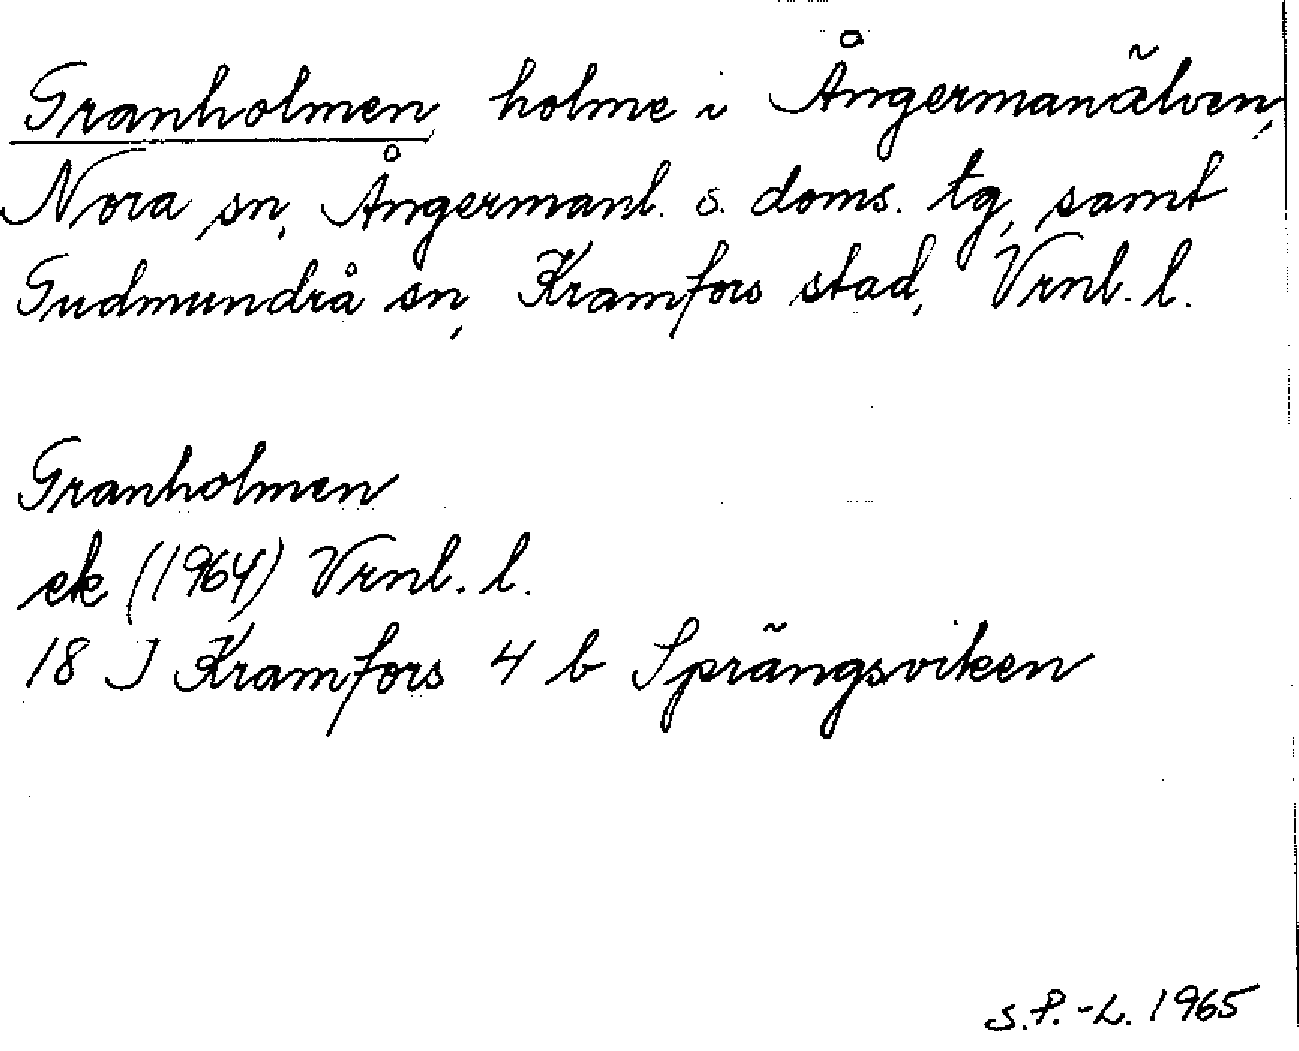 Granholmen, holme i Ångermanälven,
Nora sn, Ångermanl. s. doms. tg, samt
Gudmundrå sn, Kramfors stad, Vrnl. l.
Granholmen
ek (1964) Vrnl. l.
18 I Kramfors 4 b Sprängsviken
S.P.-L. 1965